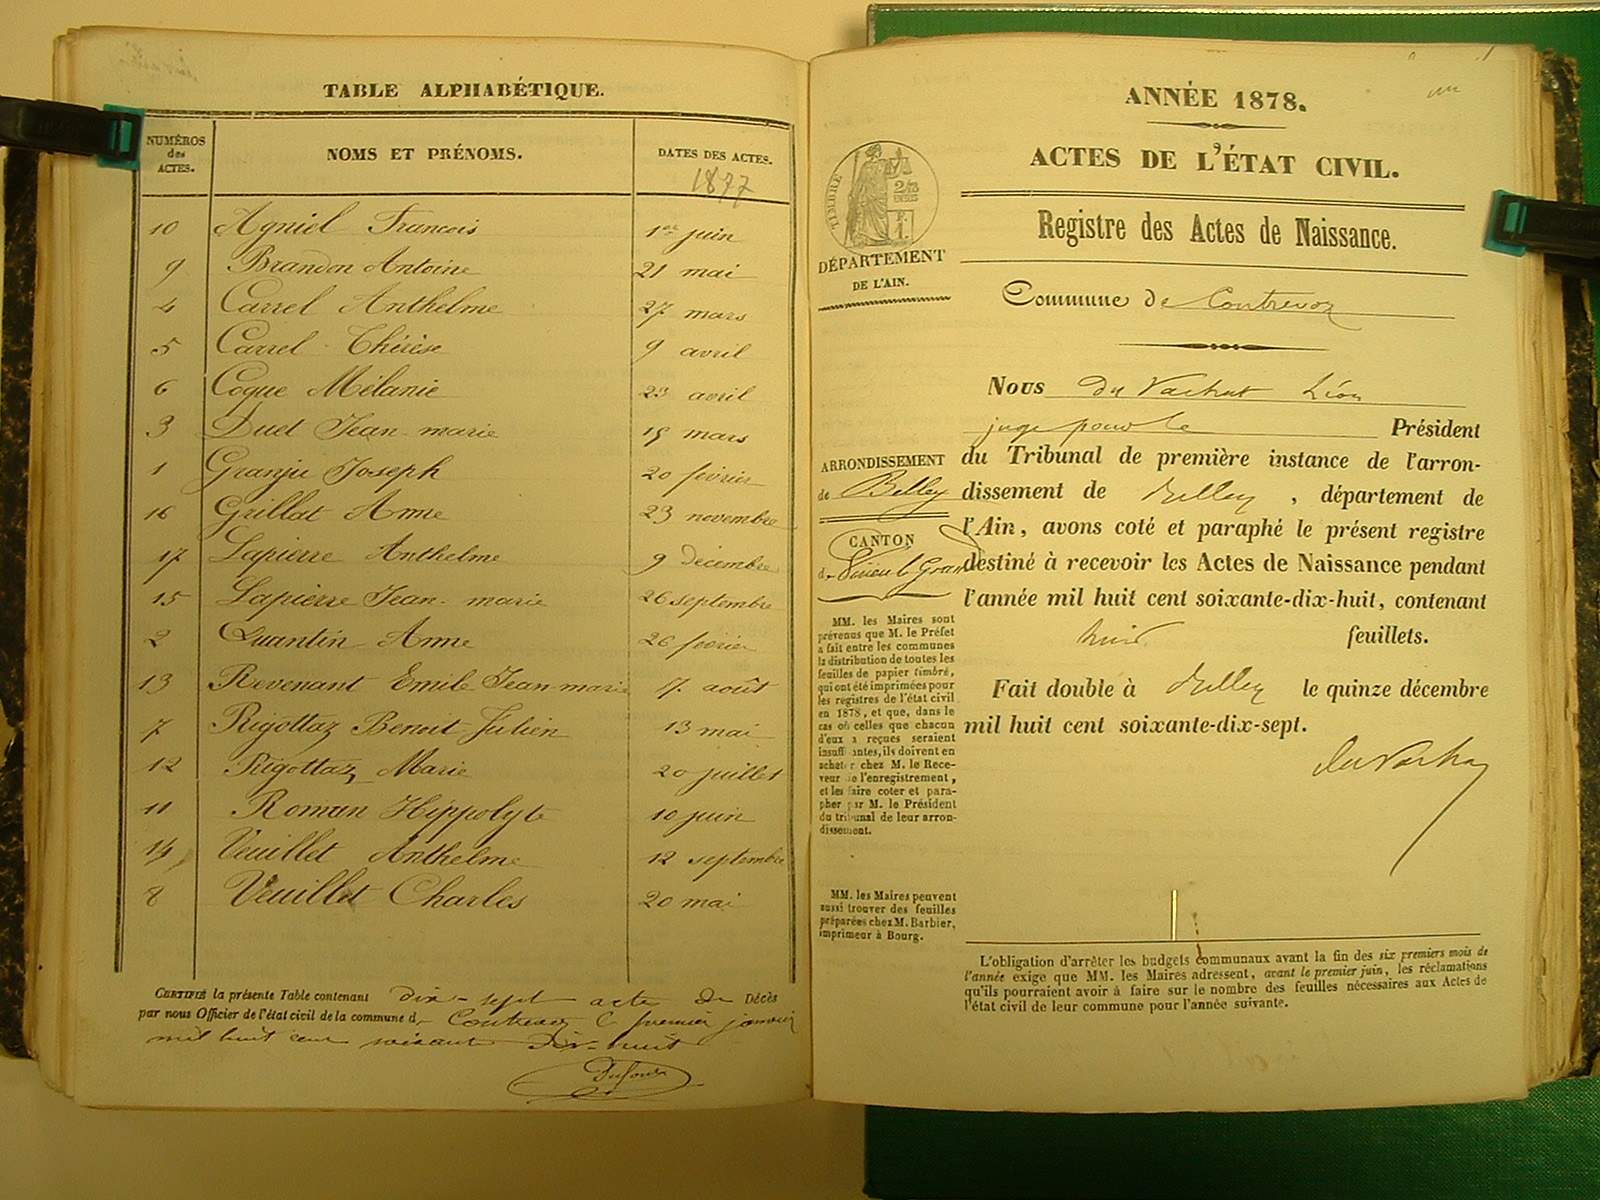 TABLE ALPHABÉTIQUE.
NUMÉROS des ACTES.
NOMS ET PRÉNOMS.
DATES DES ACTES.
1877
10 Agniel Francois 1er juin
9 Brandon Antoine 21 mai
4 Carrel Anthelme 27 mars
5 Carrel Thérèse 9 avril
6 Coque Mélanie 23 avril
3 Duet Jean-marie 19 mars
1 Granju Joseph 20 février
16 Grillat Anne 23 novembre
17 Lapierre Anthelme 9 décembre
15 Lapierre Jean-marie 26 septembre
2 Quantin Anne 26 février
13 Revenant Emile Jean-marie 7 août
7 Rigottaz Benoit Julien 13 mai
12 Rigottaz Marie 20 juillet
11 Roman Hippolyte 10 juin
14 Veuillet Anthelme 12 septembre
8 Veuillet Charles 20 mai
CERTIFIÉ la présente Table contenant dix-sept acte de Décès
par nous Officier de l'état civil de la commune d Contrevoz le premier janvier
mil huit cent soixante dix-huit
Dufour
1
ANNÉE 1878.
ACTES DE L'ÉTAT CIVIL.
TIMBRE
Registre des Actes de Naissance.
DÉPARTEMENT
DE L'AIN.
Commune de Contrevoz
Nous du Vachat Léon
juge pour le Président
du Tribunal de première instance de l'arron-
dissement de Belley, département de
l'Ain, avons coté et paraphé le présent registre
destiné à recevoir les Actes de Naissance pendant
l'année mil huit cent soixante-dix-huit, contenant
feuillets.
Fait double à Belley le quinze décembre
mil huit cent soixante-dix-sept.
du Vachat
ARRONDISSEMENT
de Belley
CANTON
d Virieu le Grand
MM. les Maires sont
prévenus que M. le Préfet
a fait entre les communes
la distribution de toutes les
feuilles de papier timbré,
qui ont été imprimées pour
les registres de l'état civil
en 1878, et que, dans le
cas où celles que chacun
d'eux a reçues seraient
insuffisantes, ils doivent en
acheter chez M. le Rece-
veur de l'enregistrement,
et les faire coter et para-
pher par M. le Président
du tribunal de leur arron-
dissement.
MM. les Maires peuvent
aussi trouver des feuilles
préparées chez M. Barbier,
imprimeur à Bourg.
L'obligation d'arrêter les budgets communaux avant la fin des six premiers mois de
l'année exige que MM. les Maires adressent, avant le premier juin, les réclamations
qu'ils pourraient avoir à faire sur le nombre des feuilles nécessaires aux Actes de
l'état civil de leur commune pour l'année suivante.